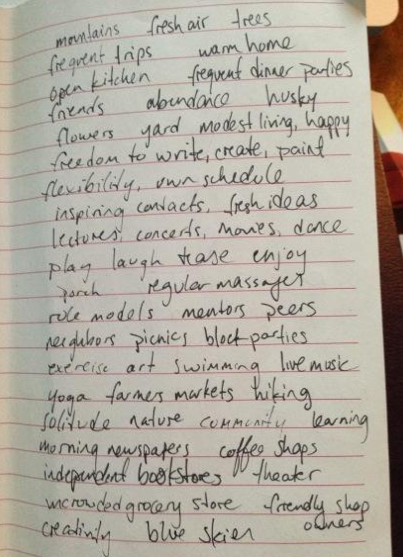 mountains fresh air trees
frequent trips warm home
open kitchen frequent dinner parties
friends abundance husky
flowers yard modest living, happy
freedom to write, create, paint
flexibility, own schedule
inspiring contacts, fresh ideas
lectures, concerts, movies, dance
play laugh tease enjoy
porch regular massages
role models mentors peers
neighbors picnics block parties
exercise art swimming live music
yoga farmers markets hiking
solitude nature community learning
morning newspapers coffee shops
independent bookstores theater
uncrowded grocery store friendly shop owners
creativity blue skies